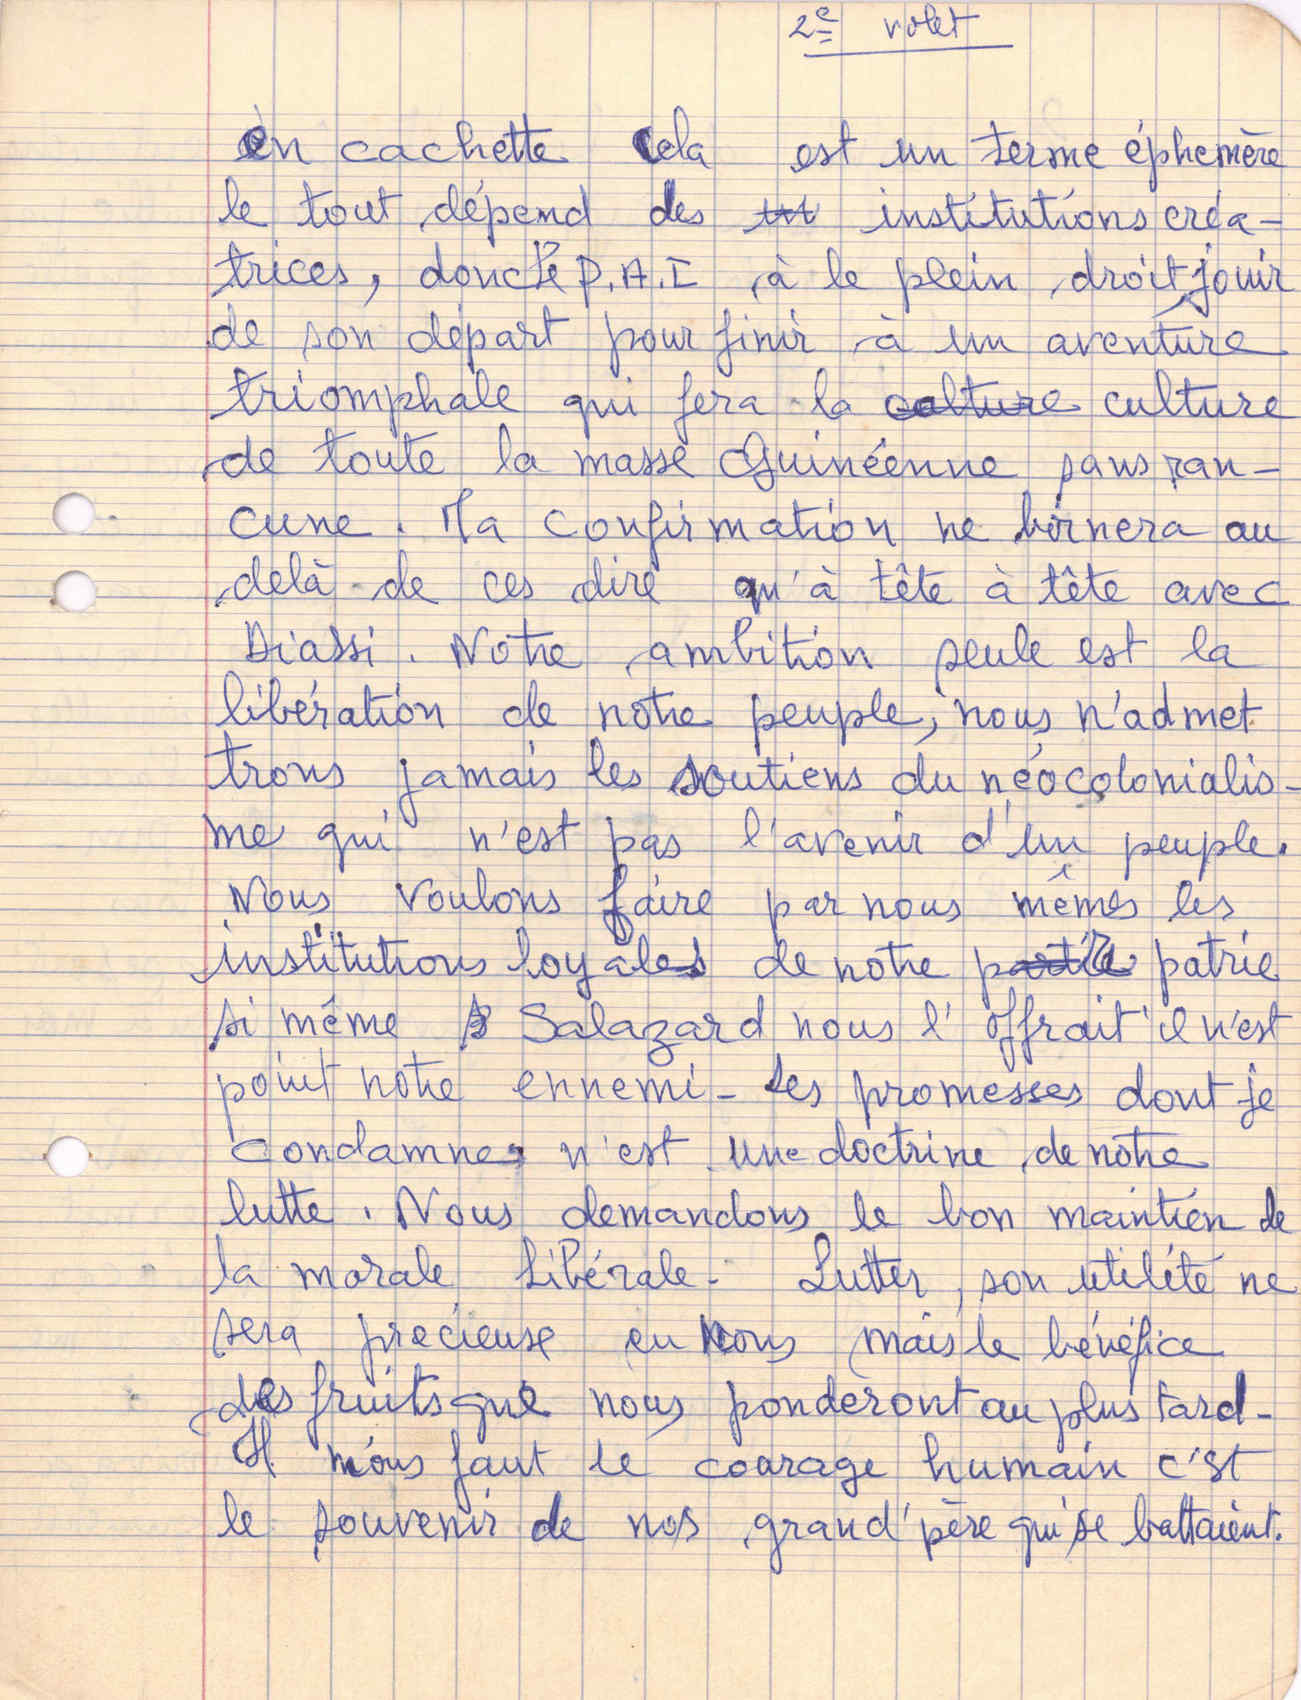 2e volet
en cachette cela est un terme éphemère
le tout dépend des institutions créa-
trices, donc le P.A.I à le plein droit jouir
de son départ pour finir à un aventure
triomphale qui fera la culture culture
de toute la masse Guinéenne sans ran-
cune. Ma confirmation ne birnera au
delà de ces dire qu'à tête à tête avec
Diassi. Notre ambition seule est la
libération de notre peuple, nous n'admet
trons jamais les soutiens du néocolonialis-
me qui n'est pas l'avenir d'un peuple.
Nous voulons faire par nous mêmes les
institutions loyales de notre patrie
si même Salazard nous l'offrait il n'est
point notre ennemi - Les promesses dont je
condamne, n'est une doctrine de notre
lutte. Nous demandons le bon maintien de
la morale libérale - Lutter, son utilété ne
sera précieuse en nous mais le bénéfice
des fruits que nous ponderont au plus tard -
Il nous faut le courage humain c'st
le souvenir de nos grand'père qui se battaient.